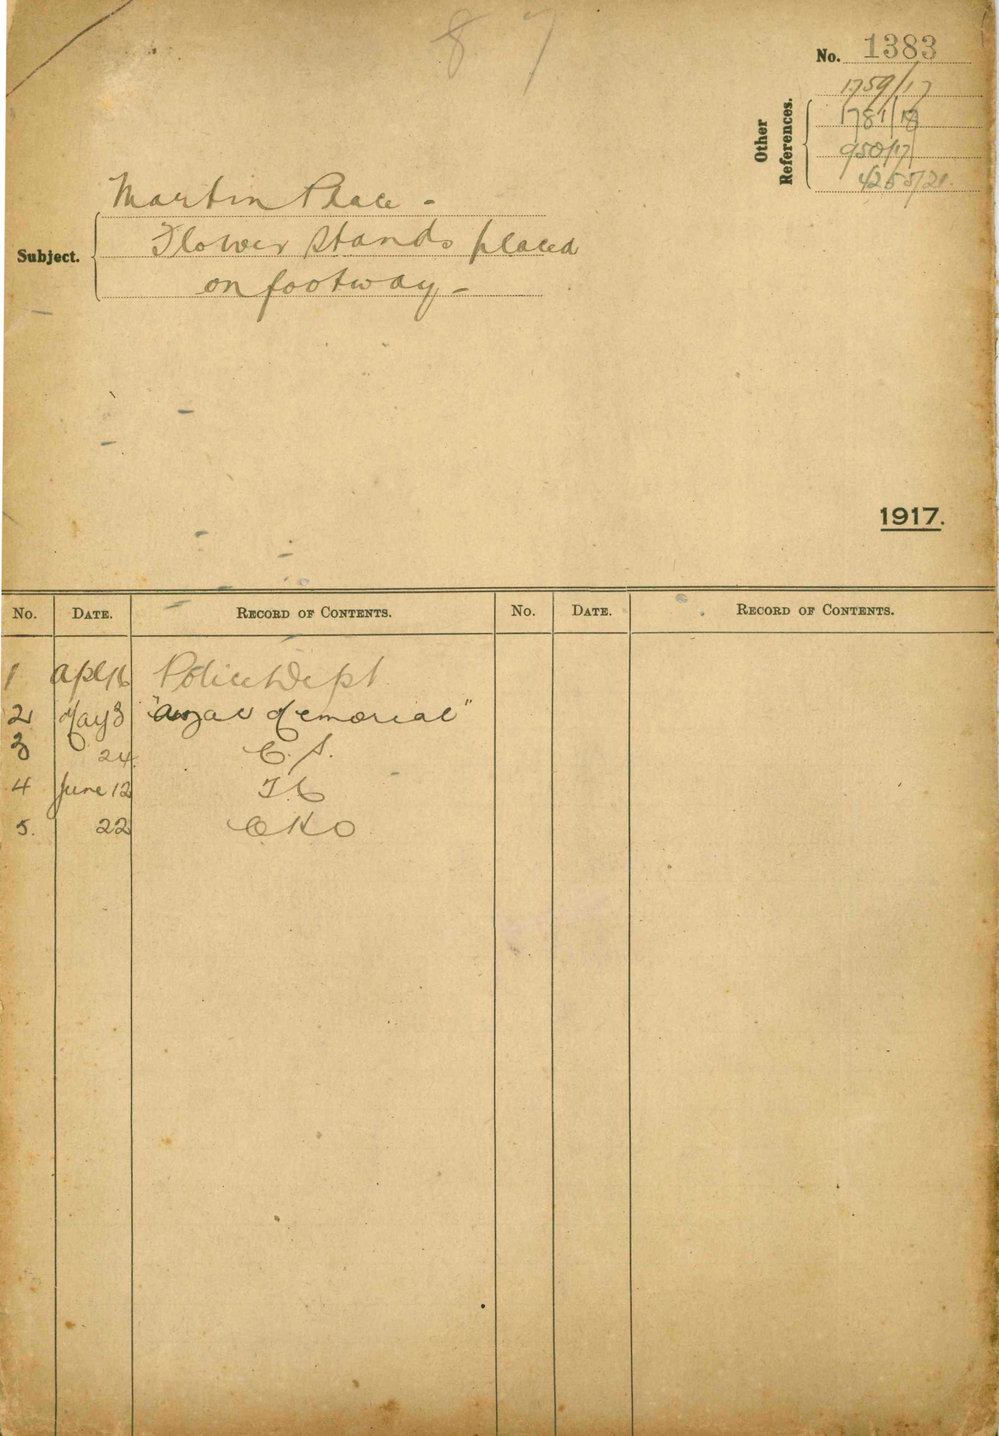 8 7
No. 1383
Other References.
1759/17
1781/18
950/17
4255/21.
Subject.
Martin Place -
Flower Stands placed
on footway -
1917.
No. DATE. RECORD OF CONTENTS. No. DATE. RECORD OF CONTENTS.
1 Apl 16 Police Dept
2 May 3 "Anzac Memorial"
3 " 24 C.S.
4 June 12 T C
5. 22